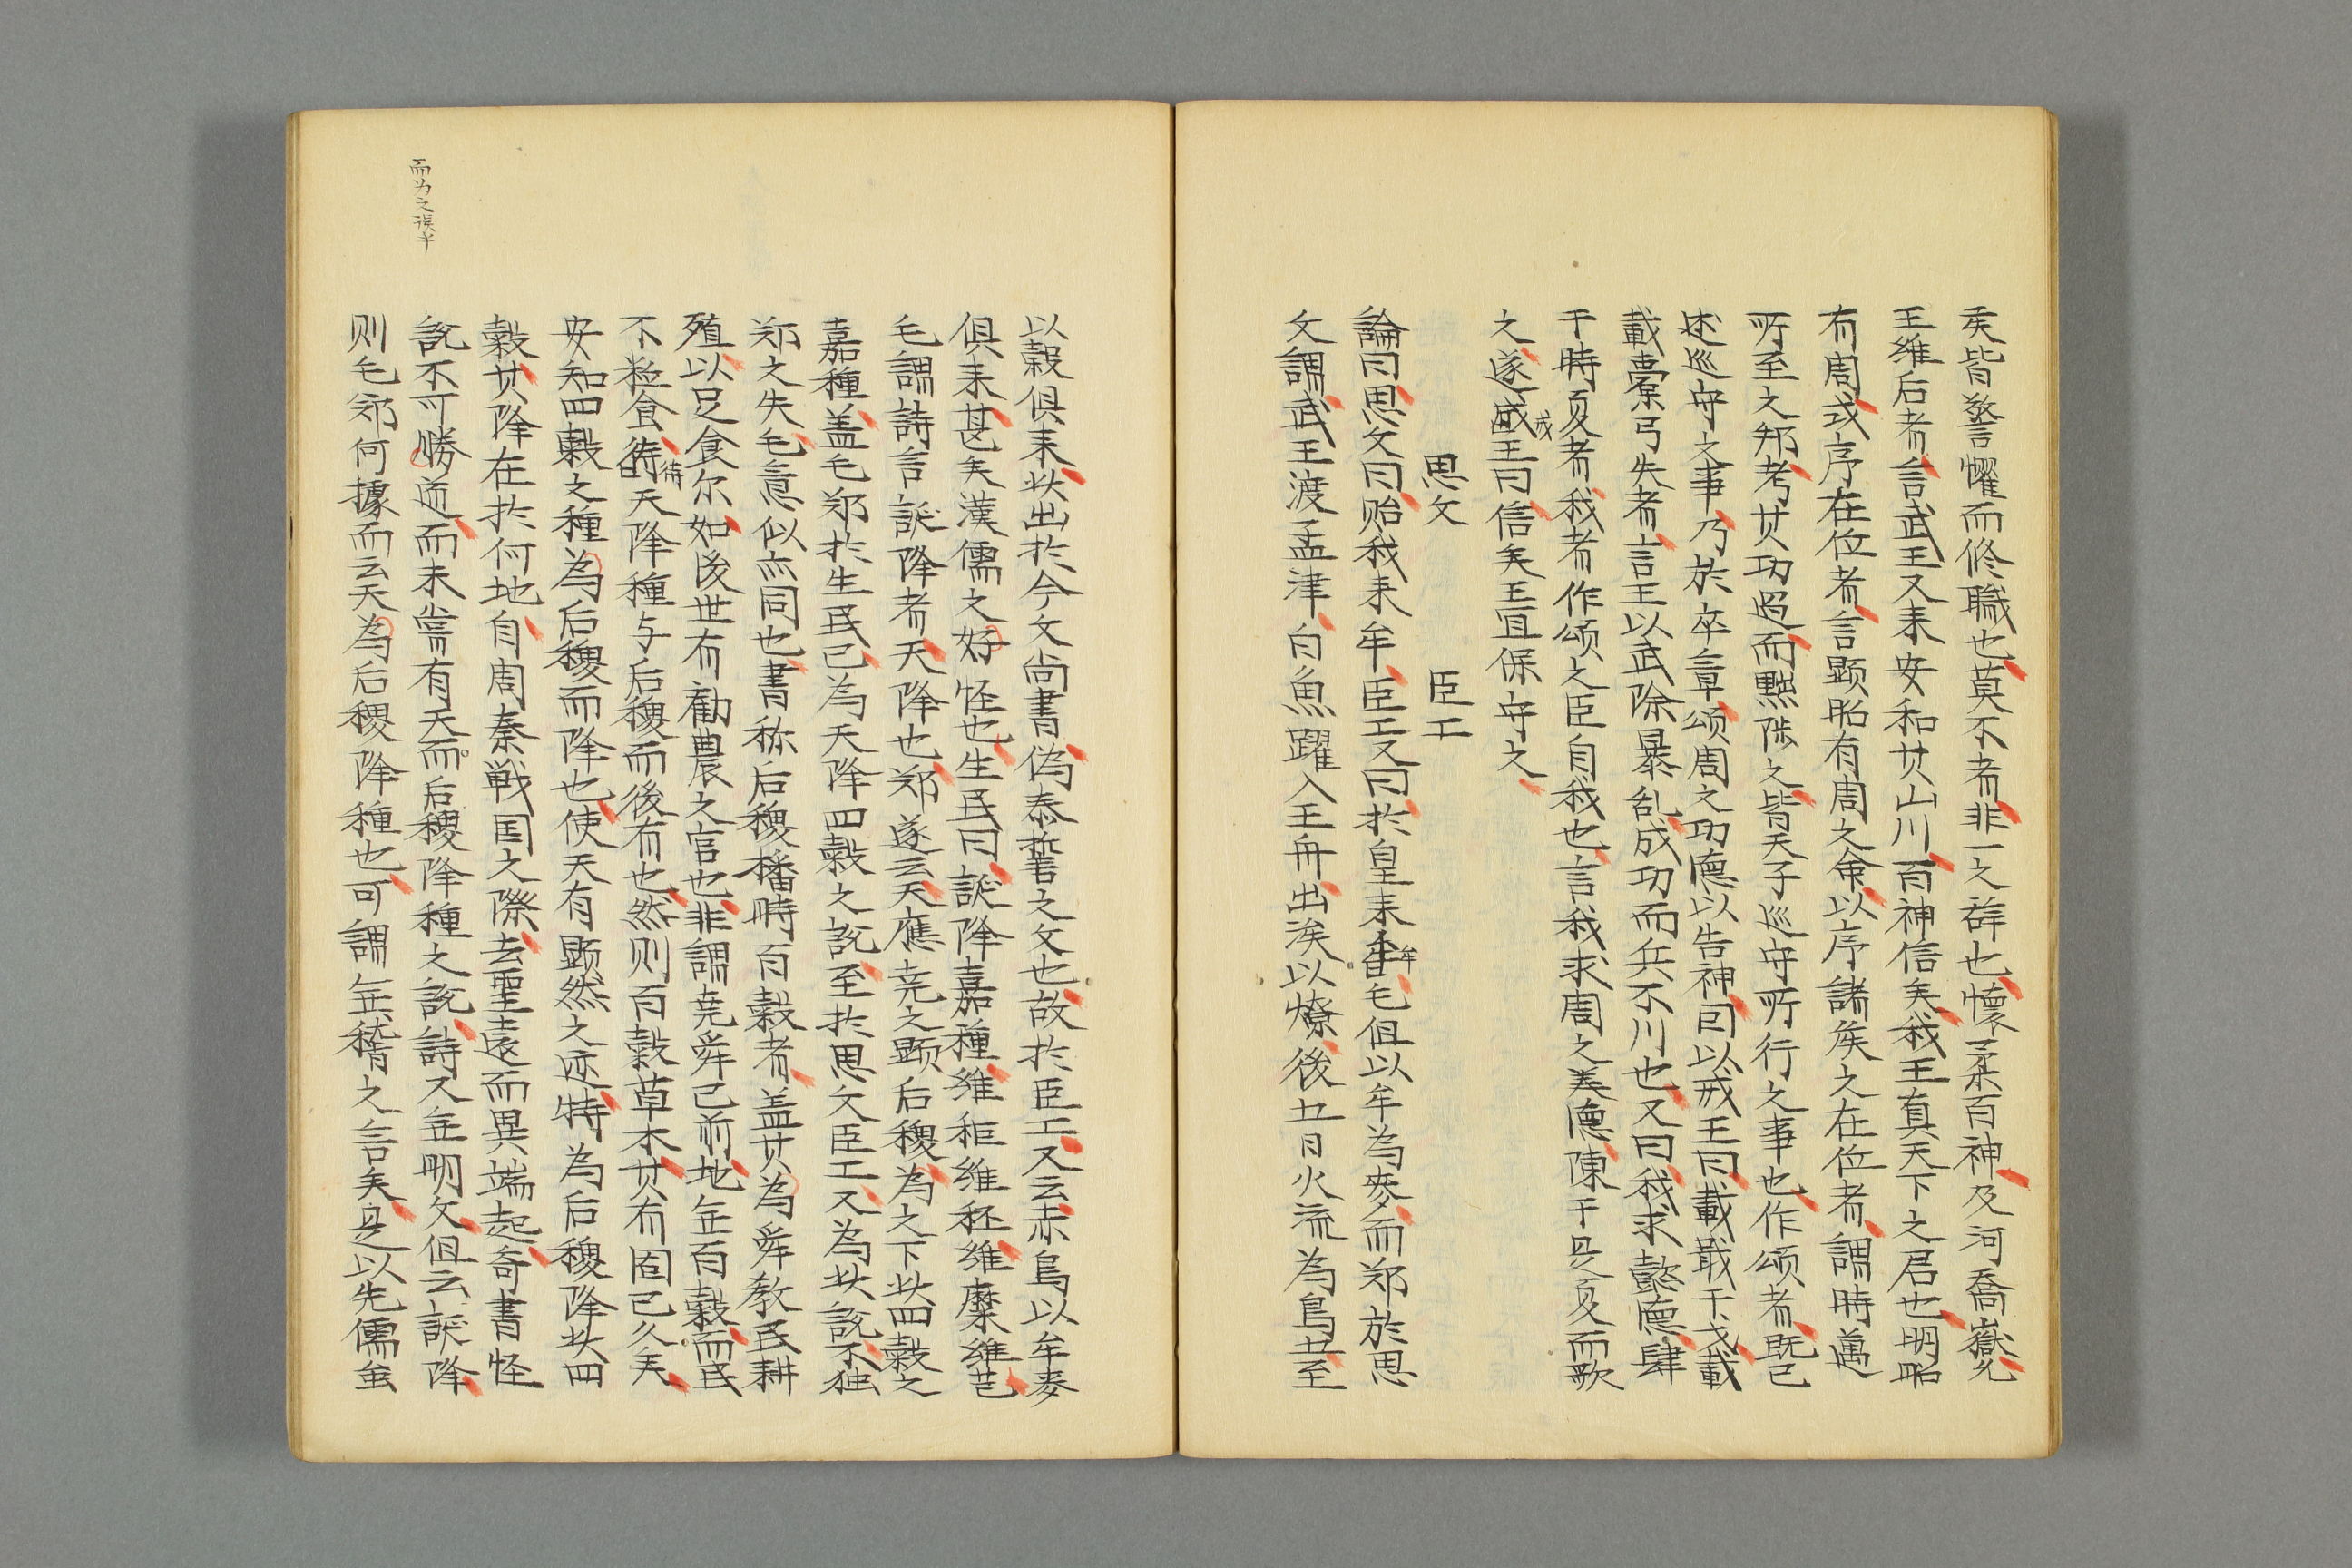 矦皆警懼而修職也莫不者非一之辞也懷柔百神及河喬嶽允
王維后者言武王又来安和其山川百神信矣我王真天下之君也明昭
有周或序在位者言顕昭有周之命以序諸矦之在位者謂時邁
所至之邦考其功過而黜陟之皆天子巡守所行之事也作頌者既已
述巡守之事乃於卒章頌周之功德以告神因以戒王曰載戢干戈載
載櫜弓矢者言王以武除暴乱成功而兵不用也又曰我求懿德肆
于時夏者我者作頌之臣自我也言我求周之美德陳于是夏而歌
之遂戒王曰信矣王宜保守之
思文　臣工
論曰思文曰貽我来牟臣工又曰於皇来牟毛但以牟為麥而郑於思
文謂武王渡孟津白魚躍入王舟出涘以燎後五日火流為烏五至
以穀俱来此出於今文尚書偽泰誓之文也故於臣工又云赤烏以牟麥
俱来甚矣漢儒之好怪也生民曰誕降嘉種維秬維秠維穈維芑
毛謂詩言誕降者天降也郑遂云天應尭之顕后稷為之下此四穀之
嘉種盖毛郑於生民已為天降四穀之説至於思文臣工又為此説不独
郑之失毛意似亦同也書称后稷播時百穀者盖其為舜教民耕
殖以足食尔如後世有勧農之官也非謂尭舜已前地無百穀而民
不粒食待天降種与后稷而後有也然则百穀草木其有固已久矣
安知四穀之種為后稷而降也使天有顕然之迹特為后稷降此四
穀其降在於何地自周秦戦国之際去聖遠而異端起奇書怪
説不可勝道而未嘗有天而后稷降種之説詩又無明文但云誕降
则毛郑何據而云天為后稷降種也可謂無稽之言矣是以先儒虽
而为之誤乎